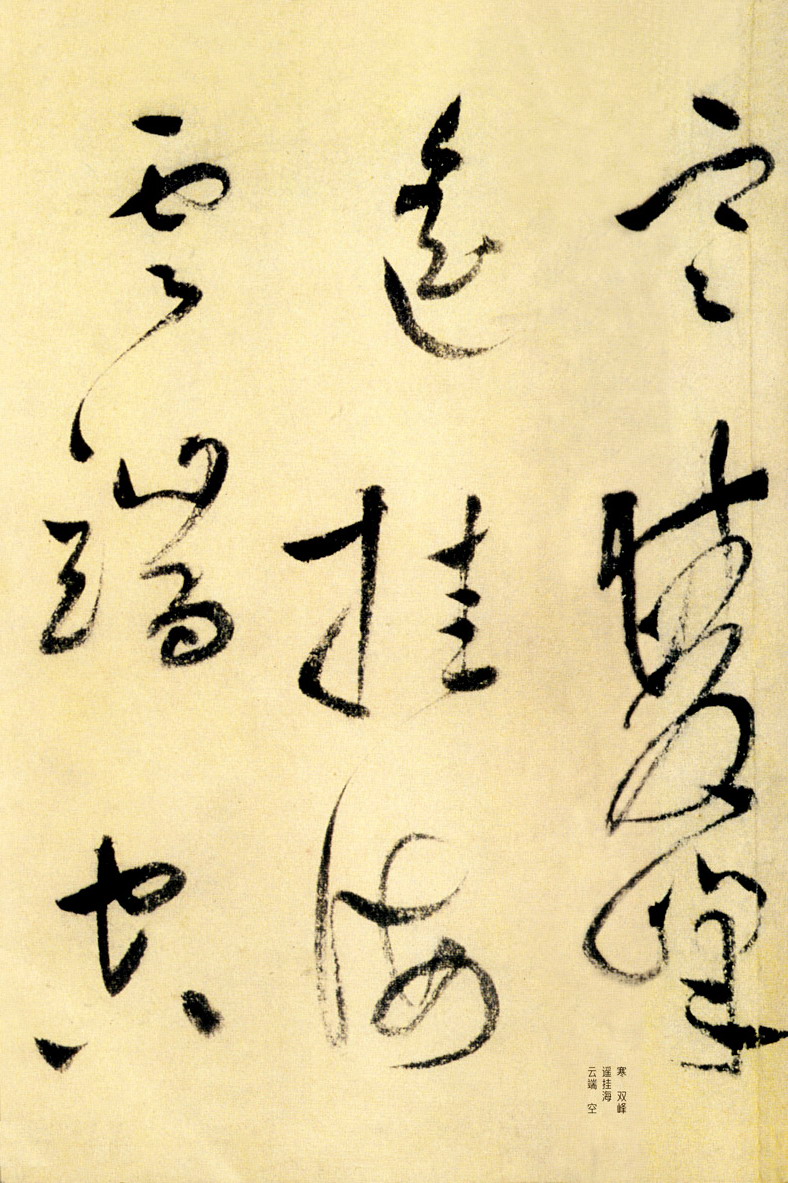 寒雙峰
遥挂海
雲端空
寒 双峰
遥挂海
云端 空